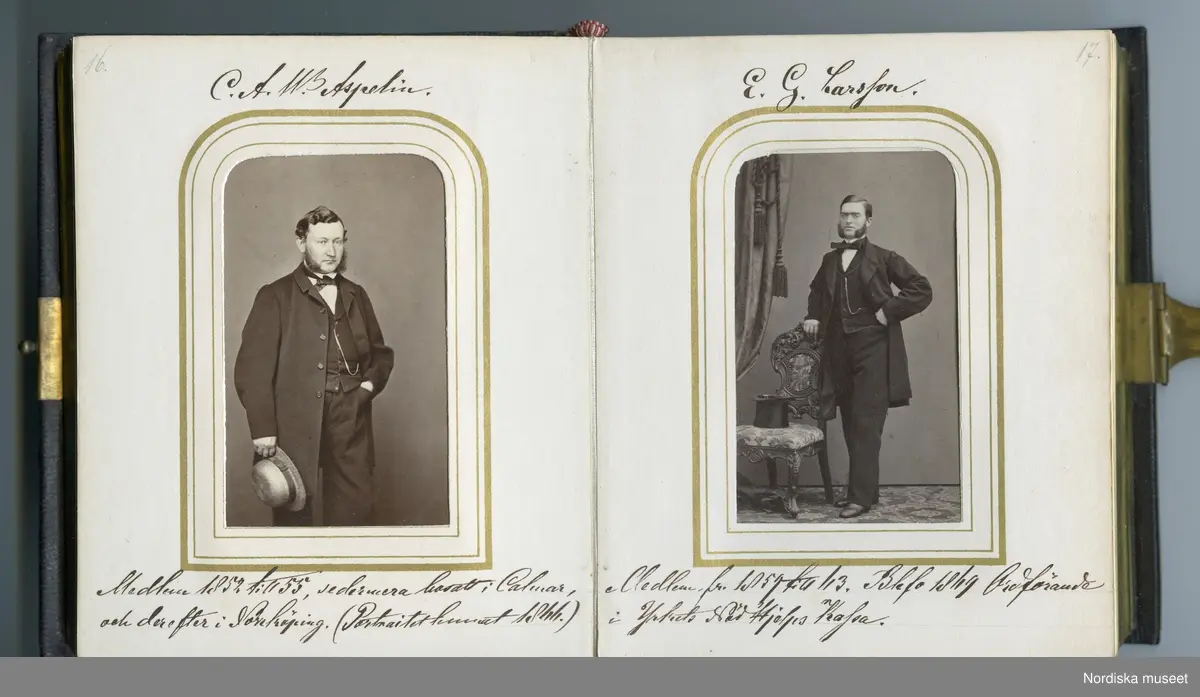 16.
C. A. W. Aspelin.
Medlem 1852 till 55, sedermera bosatt i Calmar,
och derefter i Norrköping. (Portraitet lemnat 1866.)
17.
E. G. Larsson.
Medlem fr. 1857 till 63. Blef 1869 Ordförande
i Yrkets Nöd Hjelps Kassa.
Nordiska museet